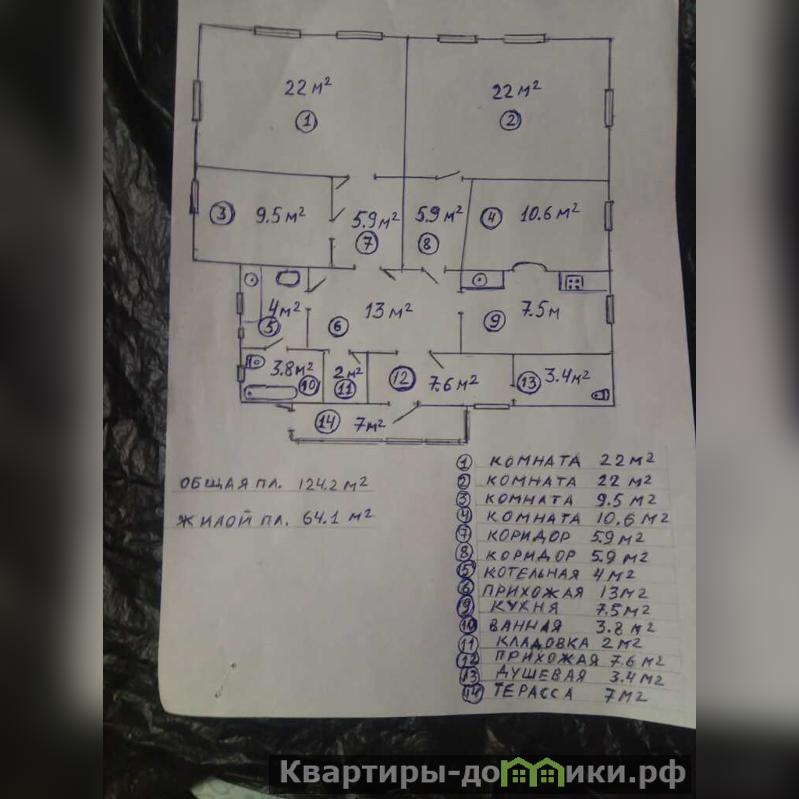 22 м²
22 м²
1
2
3
9.5 м²
5.9 м²
7
5.9 м²
8
4
10.6 м²
4 м²
5
6
13 м²
9
7.5 м
3.8 м²
10
2 м²
11
12
7.6 м²
13
3.4 м²
14
7 м²
ОБЩАЯ ПЛ. 124.2 м²
ЖИЛОЙ ПЛ. 64.1 м²
1 КОМНАТА 22 м²
2 КОМНАТА 22 м²
3 КОМНАТА 9.5 м²
4 КОМНАТА 10.6 м²
7 КОРИДОР 5.9 м²
8 КОРИДОР 5.9 м²
5 КОТЕЛЬНАЯ 4 м²
6 ПРИХОЖАЯ 13 м²
9 КУХНЯ 7.5 м²
10 ВАННАЯ 3.8 м²
11 КЛАДОВКА 2 м²
12 ПРИХОЖАЯ 7.6 м²
13 ДУШЕВАЯ 3.4 м²
14 ТЕРАССА 7 м²
Квартиры-домики.рф